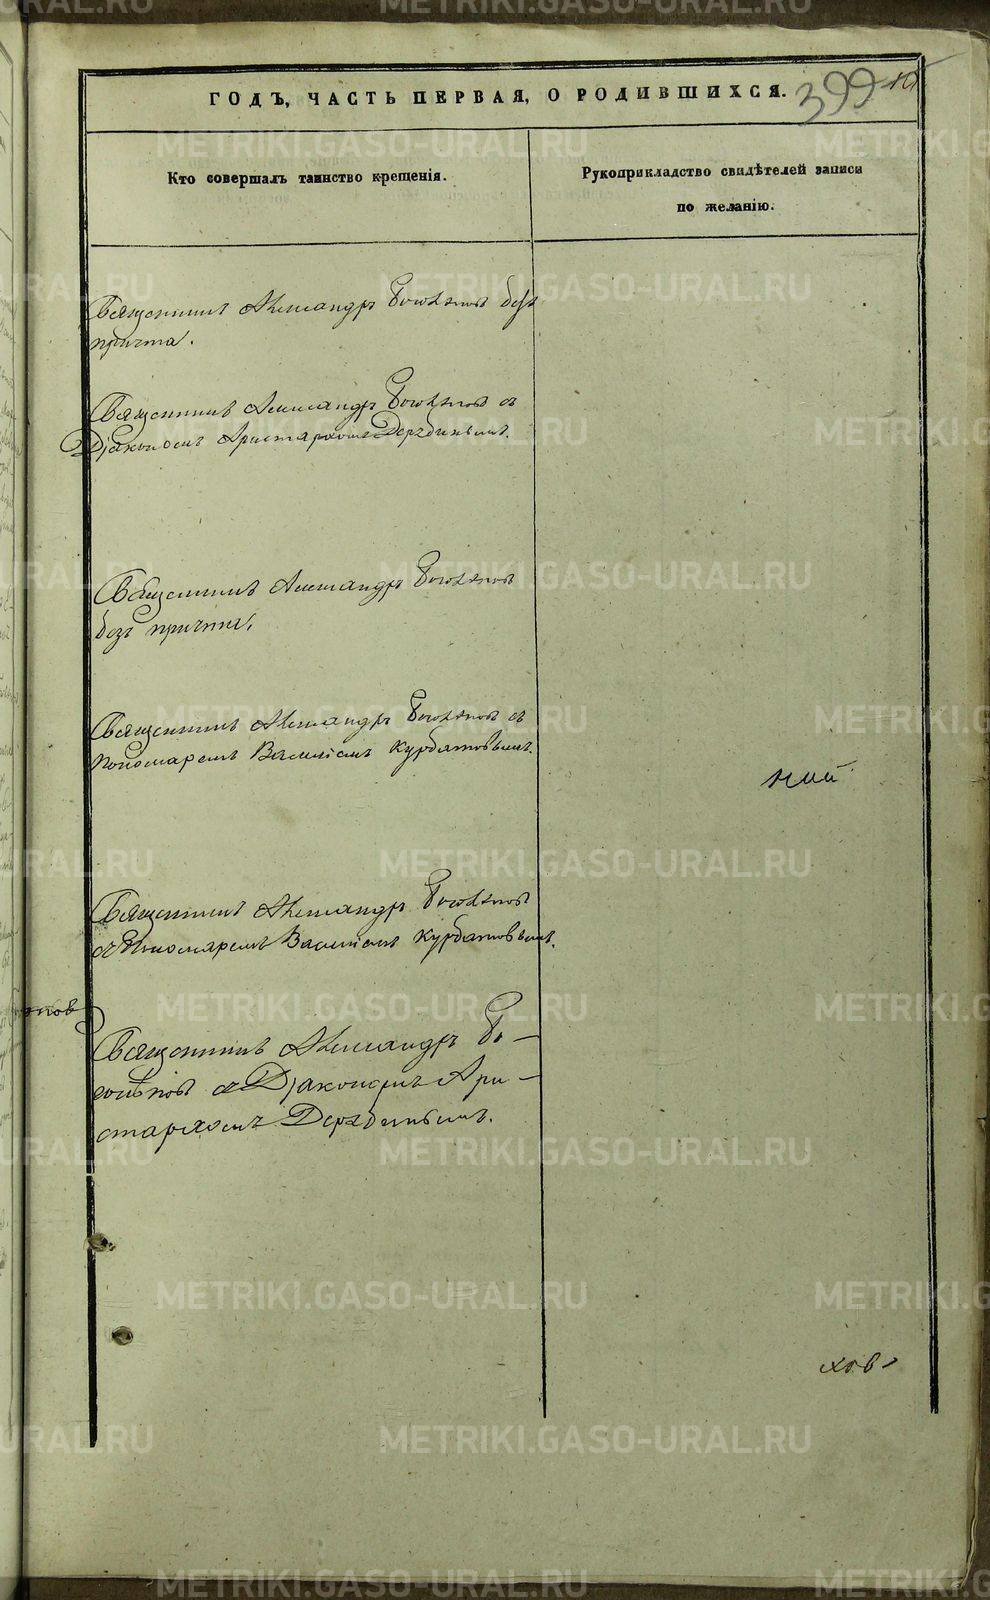 ГОДЪ, ЧАСТЬ ПЕРВАЯ, О РОДИВШИХСЯ.
399
10
Кто совершалъ таинство крещенія.
Рукоприкладство свидѣтелей записи
по желанію.
Священникъ Александръ безъ
причта.
Священникъ Александръ съ
Діакономъ Аристархомъ Дерябинымъ.
Священникъ Александръ
безъ причта.
Священникъ Александръ съ
пономаремъ Василіемъ Курбатовымъ.
Священникъ Александръ
съ Пономаремъ Василіемъ Курбатовымъ.
Священникъ Александръ
съ Діакономъ Ари-
стархомъ Дерябинымъ.
METRIKI.GASO-URAL.RU